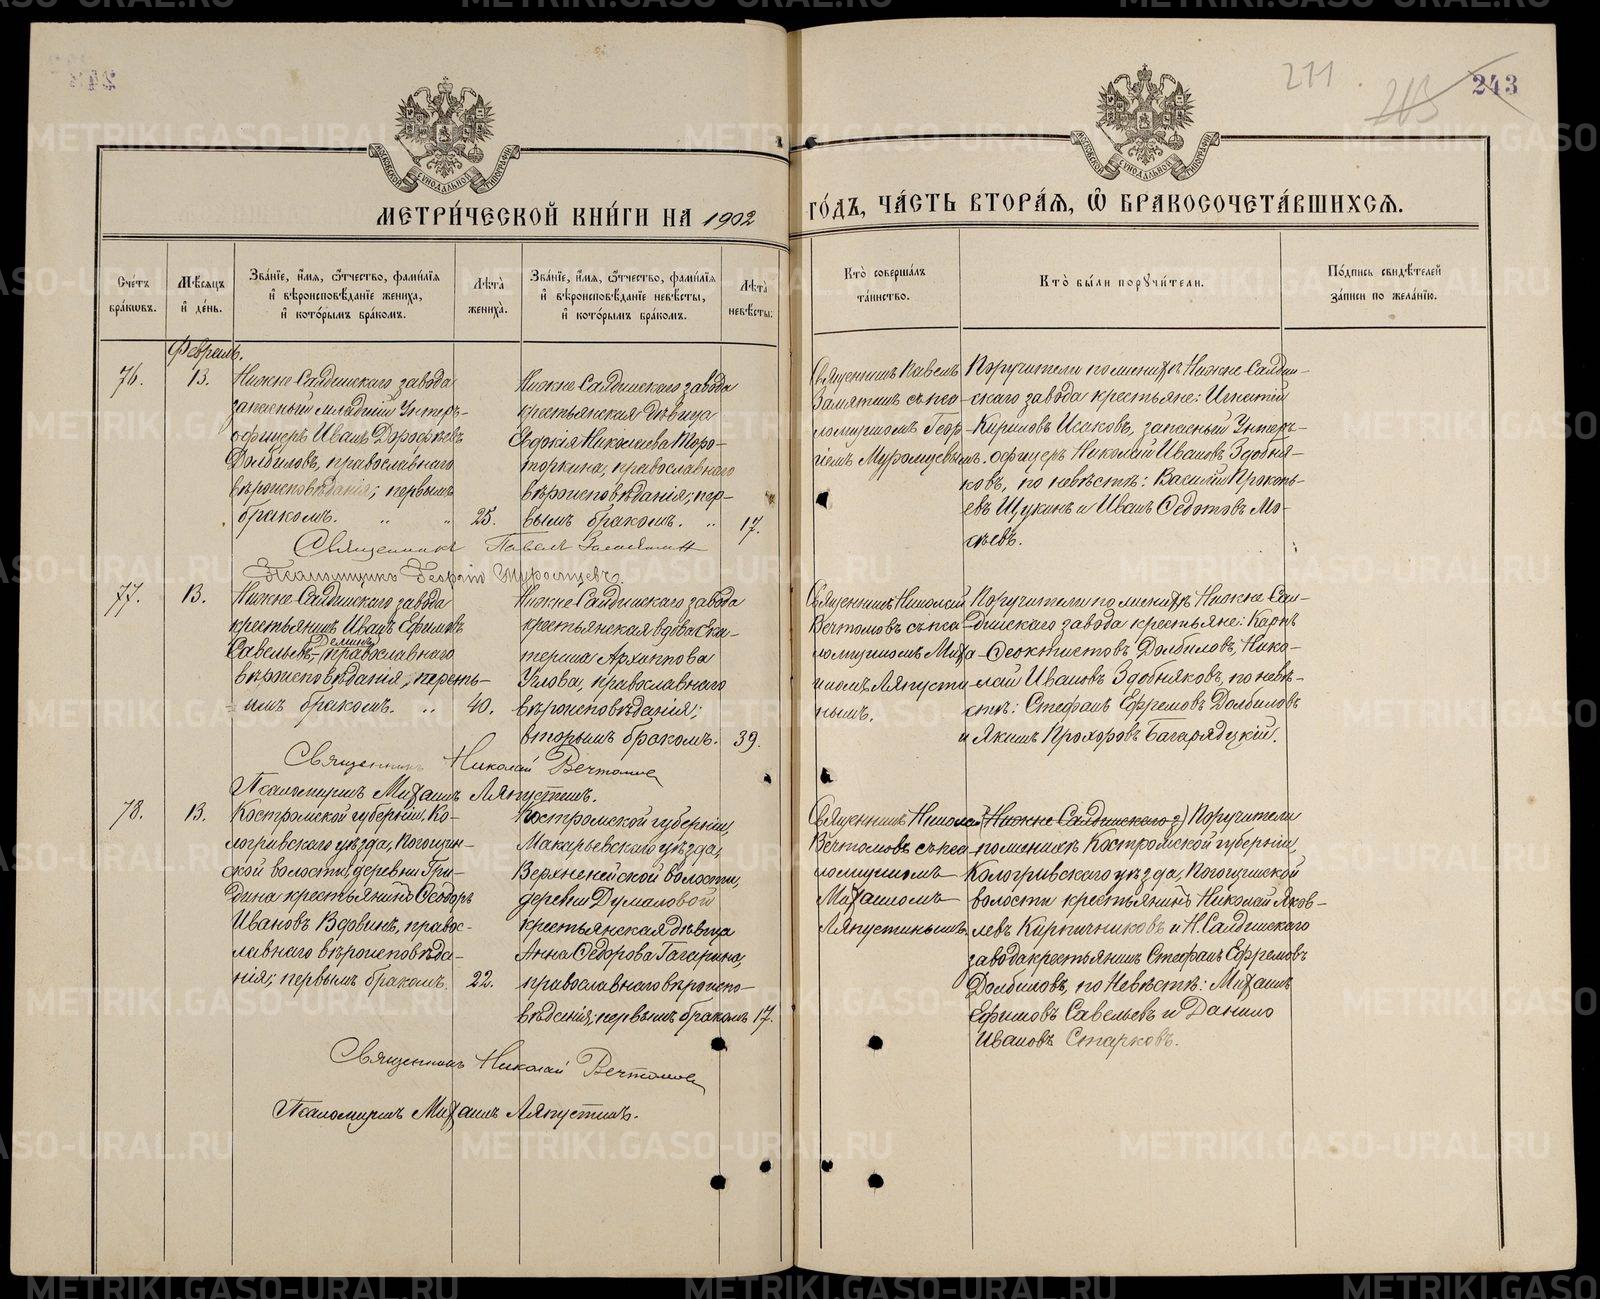 211
243
243
МЕТРИ́ЧЕСКОЙ КНИ́ГИ НА 1902 ГО́ДЪ, ЧА́СТЬ ВТОРА́Я, Ѡ БРАКОСОЧЕТА́ВШИХСЯ.
Сче́тъ бра́кωвъ.
Мѣ́сяцъ и҆ де́нь.
Зва́нїе, и҆́мя, ѻ҆́тчество, фами́лїя и҆ вѣроисповѣ́данїе жениха̀, и҆ кото́рымъ бра́комъ.
Лѣта̀ жениха̀.
Зва́нїе, и҆́мя, ѻ҆́тчество, фами́лїя и҆ вѣроисповѣ́данїе невѣ́сты, и҆ кото́рымъ бра́комъ.
Лѣта̀ невѣ́сты.
Кто̀ соверша́лъ та́инство.
Кто̀ бы́ли порꙋчи́тели.
По́дпись свидѣ́телей за́писи по жела́нїю.
Февраль.
76.
13.
Нижне-Салдинскаго завода
запасный младшій Унтеръ-
офицеръ Иванъ Дорофѣевъ
Долбиловъ, православнаго
вѣроисповѣданія; первымъ
бракомъ. „ „
25.
Нижне Салдинскаго завода
крестьянская дѣвица
Евдокія Николаева Торо-
торкина, православнаго
вѣроисповѣданія; пер-
вымъ бракомъ. „
17.
Священникъ Павелъ
Замятинъ съ пса-
ломщикомъ Геор-
гіемъ Муромцевымъ.
Поручители по женихѣ Нижне-Салдин-
скаго завода крестьяне: Игнатій
Кириловъ Исаковъ, запасный Унтеръ-
офицеръ Николай Ивановъ Здобня-
ковъ, по невѣстѣ: Василій Прокопь-
евъ Щукинъ и Иванъ Ѳедотовъ Мо-
сѣевъ.
Священникъ Павелъ Замятин
Псаломщикъ Георгій Муромцевъ.
77.
13.
Нижне-Салдинскаго завода
крестьянинъ Иванъ Ефимовъ
Савельевъ, православнаго
вѣроисповѣданія, третьимъ
бракомъ. „
40.
Нижне-Салдинскаго завода
крестьянская вдова Ека-
терина Архиппова
Углова, православнаго
вѣроисповѣданія;
вторымъ бракомъ.
39.
Священникъ Николай
Вечтомовъ съ пса-
ломщикомъ Миха-
иломъ Ляпусти-
нымъ.
Поручители по женихѣ Нижне-Сал-
динскаго завода крестьяне: Карпъ
Ѳеоктистовъ Долбиловъ, Нико-
лай Ивановъ Здобняковъ, по невѣ-
стѣ: Стефанъ Ефремовъ Долбиловъ
и Якимъ Прохоровъ Багарядцкій.
Священникъ Николай Вечтомов
Псаломщикъ Михаилъ Ляпустинъ.
78.
13.
Костромской губерніи, Ко-
логривскаго уѣзда,
ской волости, деревни Гри-
дина крестьянинъ Ѳеодоръ
Ивановъ Вдовинъ, правос-
лавнаго вѣроисповѣда-
нія; первымъ бракомъ.
22.
Костромской губерніи,
Макарьевскаго уѣзда,
Верхненейской волости,
деревни Думаловой
крестьянская дѣвица
Анна Ѳедорова Гагарина,
православнаго вѣроиспо-
вѣданія; первымъ бракомъ
17.
Священникъ Николай
Вечтомовъ съ пса-
ломщикомъ
Михаиломъ
Ляпустинымъ.
(Нижне-Салдинскаго з) Поручители
по женихѣ Костромской губерніи,
Кологривскаго уѣзда,
волости крестьянинъ Николай Яков-
левъ Кирпичниковъ и Н. Салдинскаго
завода крестьянинъ Стефанъ Ефремовъ
Долбиловъ, по невѣстѣ: Михаилъ
Ефимовъ Савельевъ и Данило
Ивановъ Старковъ.
Священникъ Николай Вечтомов
Псаломщикъ Михаилъ Ляпустинъ.
METRIKI.GASO-URAL.RU